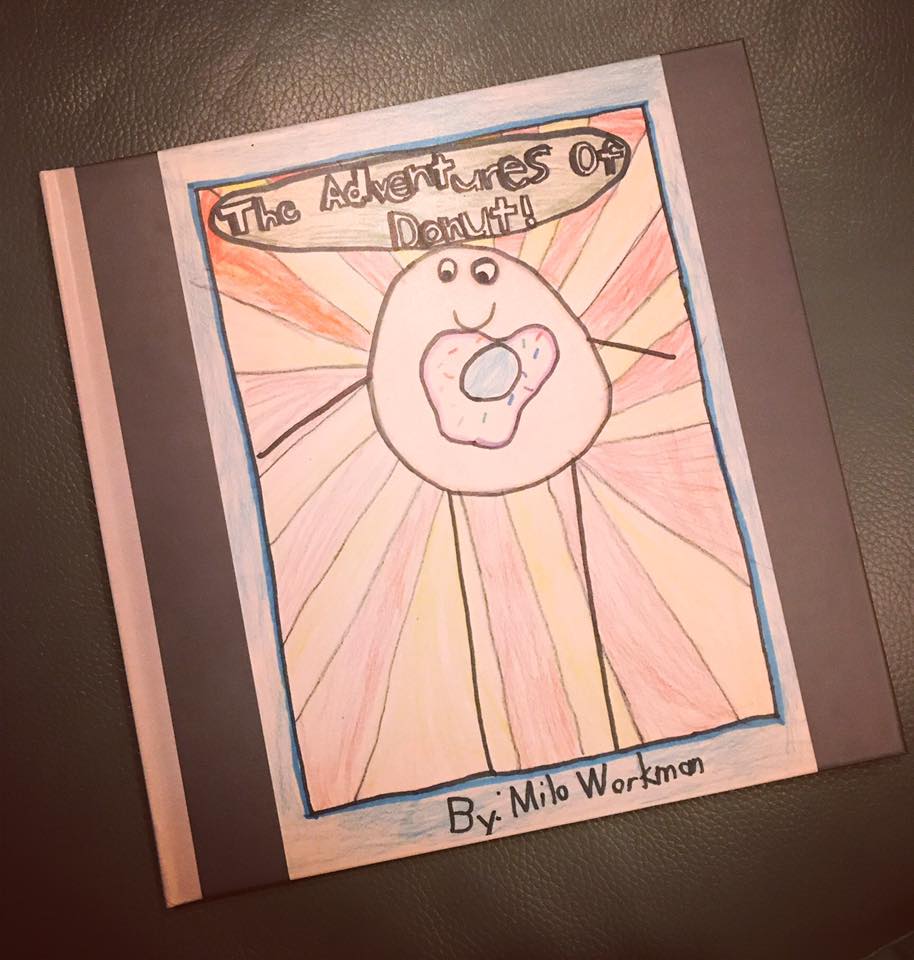 The Adventures Of
Donut!
By: Milo Workman